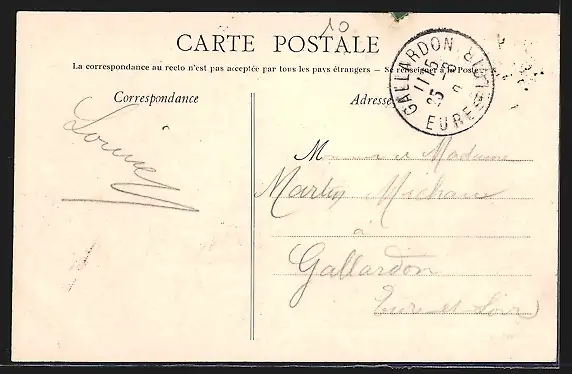 10
CARTE POSTALE
La correspondance au recto n'est pas acceptée par tous les pays étrangers — Se renseigner à la Poste
Correspondance
Adresse
GALLARDON
11 45
25
EURE
Louise
M et Madame
Martin Michau
à
Gallardon
Eure et Loir